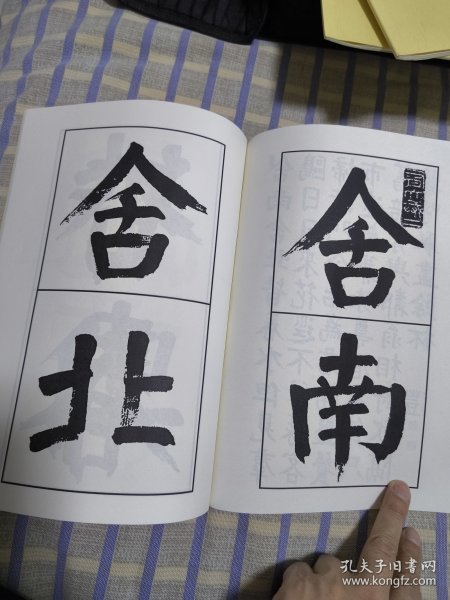 舍南
舍北
孔夫子旧书网
www.kongfz.com